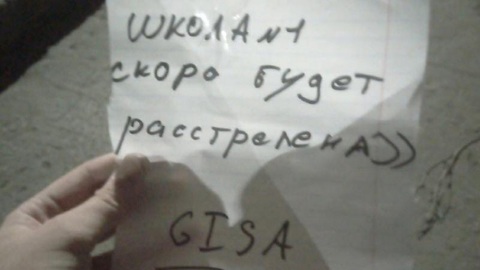 ШКОЛА №1
скоро будет
расстреленА))
GISA